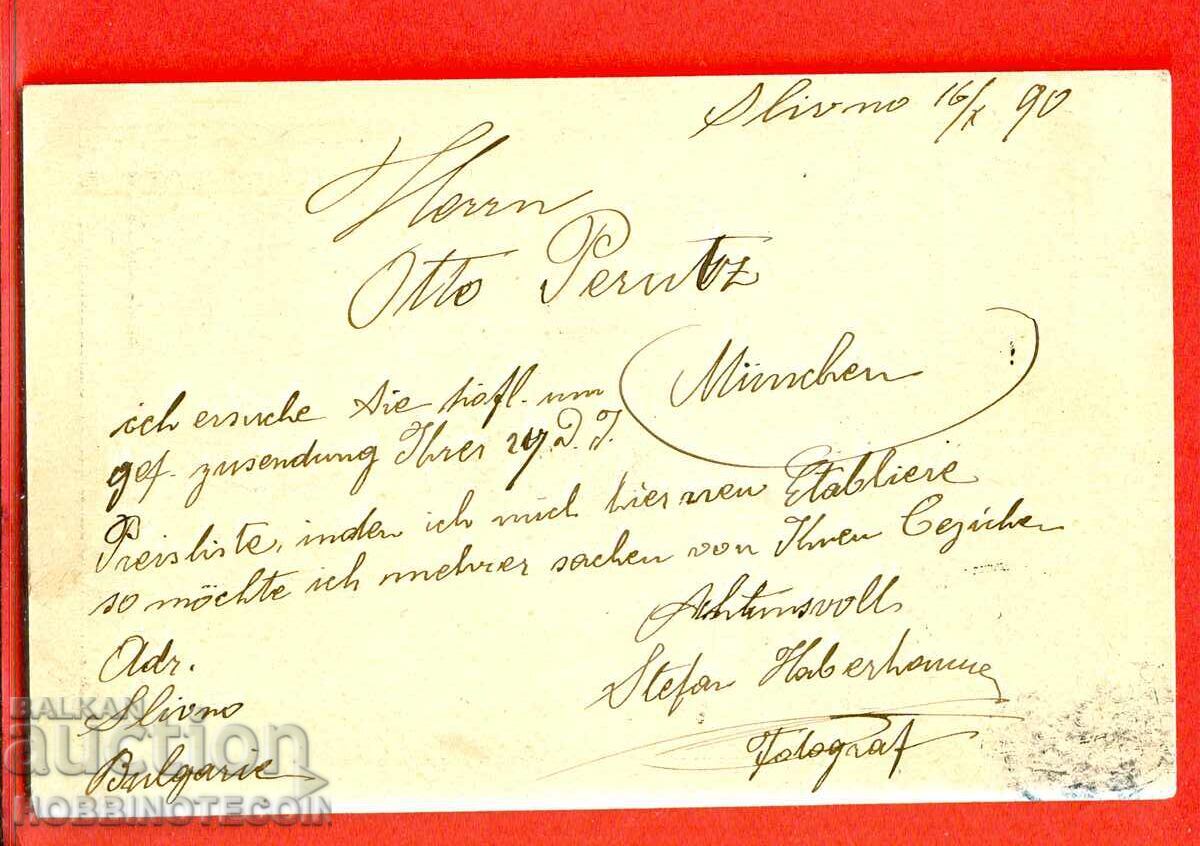 Slivno 16/X 90
Herrn
Otto Perutz
München
ich ersuche Sie höfl. um
gef. zusendung Ihrer
Preisliste, inden ich mich hier neu Etabliere
so möchte ich mehrer sachen von Ihnen
Achtunsvoll
Stefan
Fotograf
Adr.
Slivno
Bulgarie
BALKAN
auction
HOBBINOTECOIN